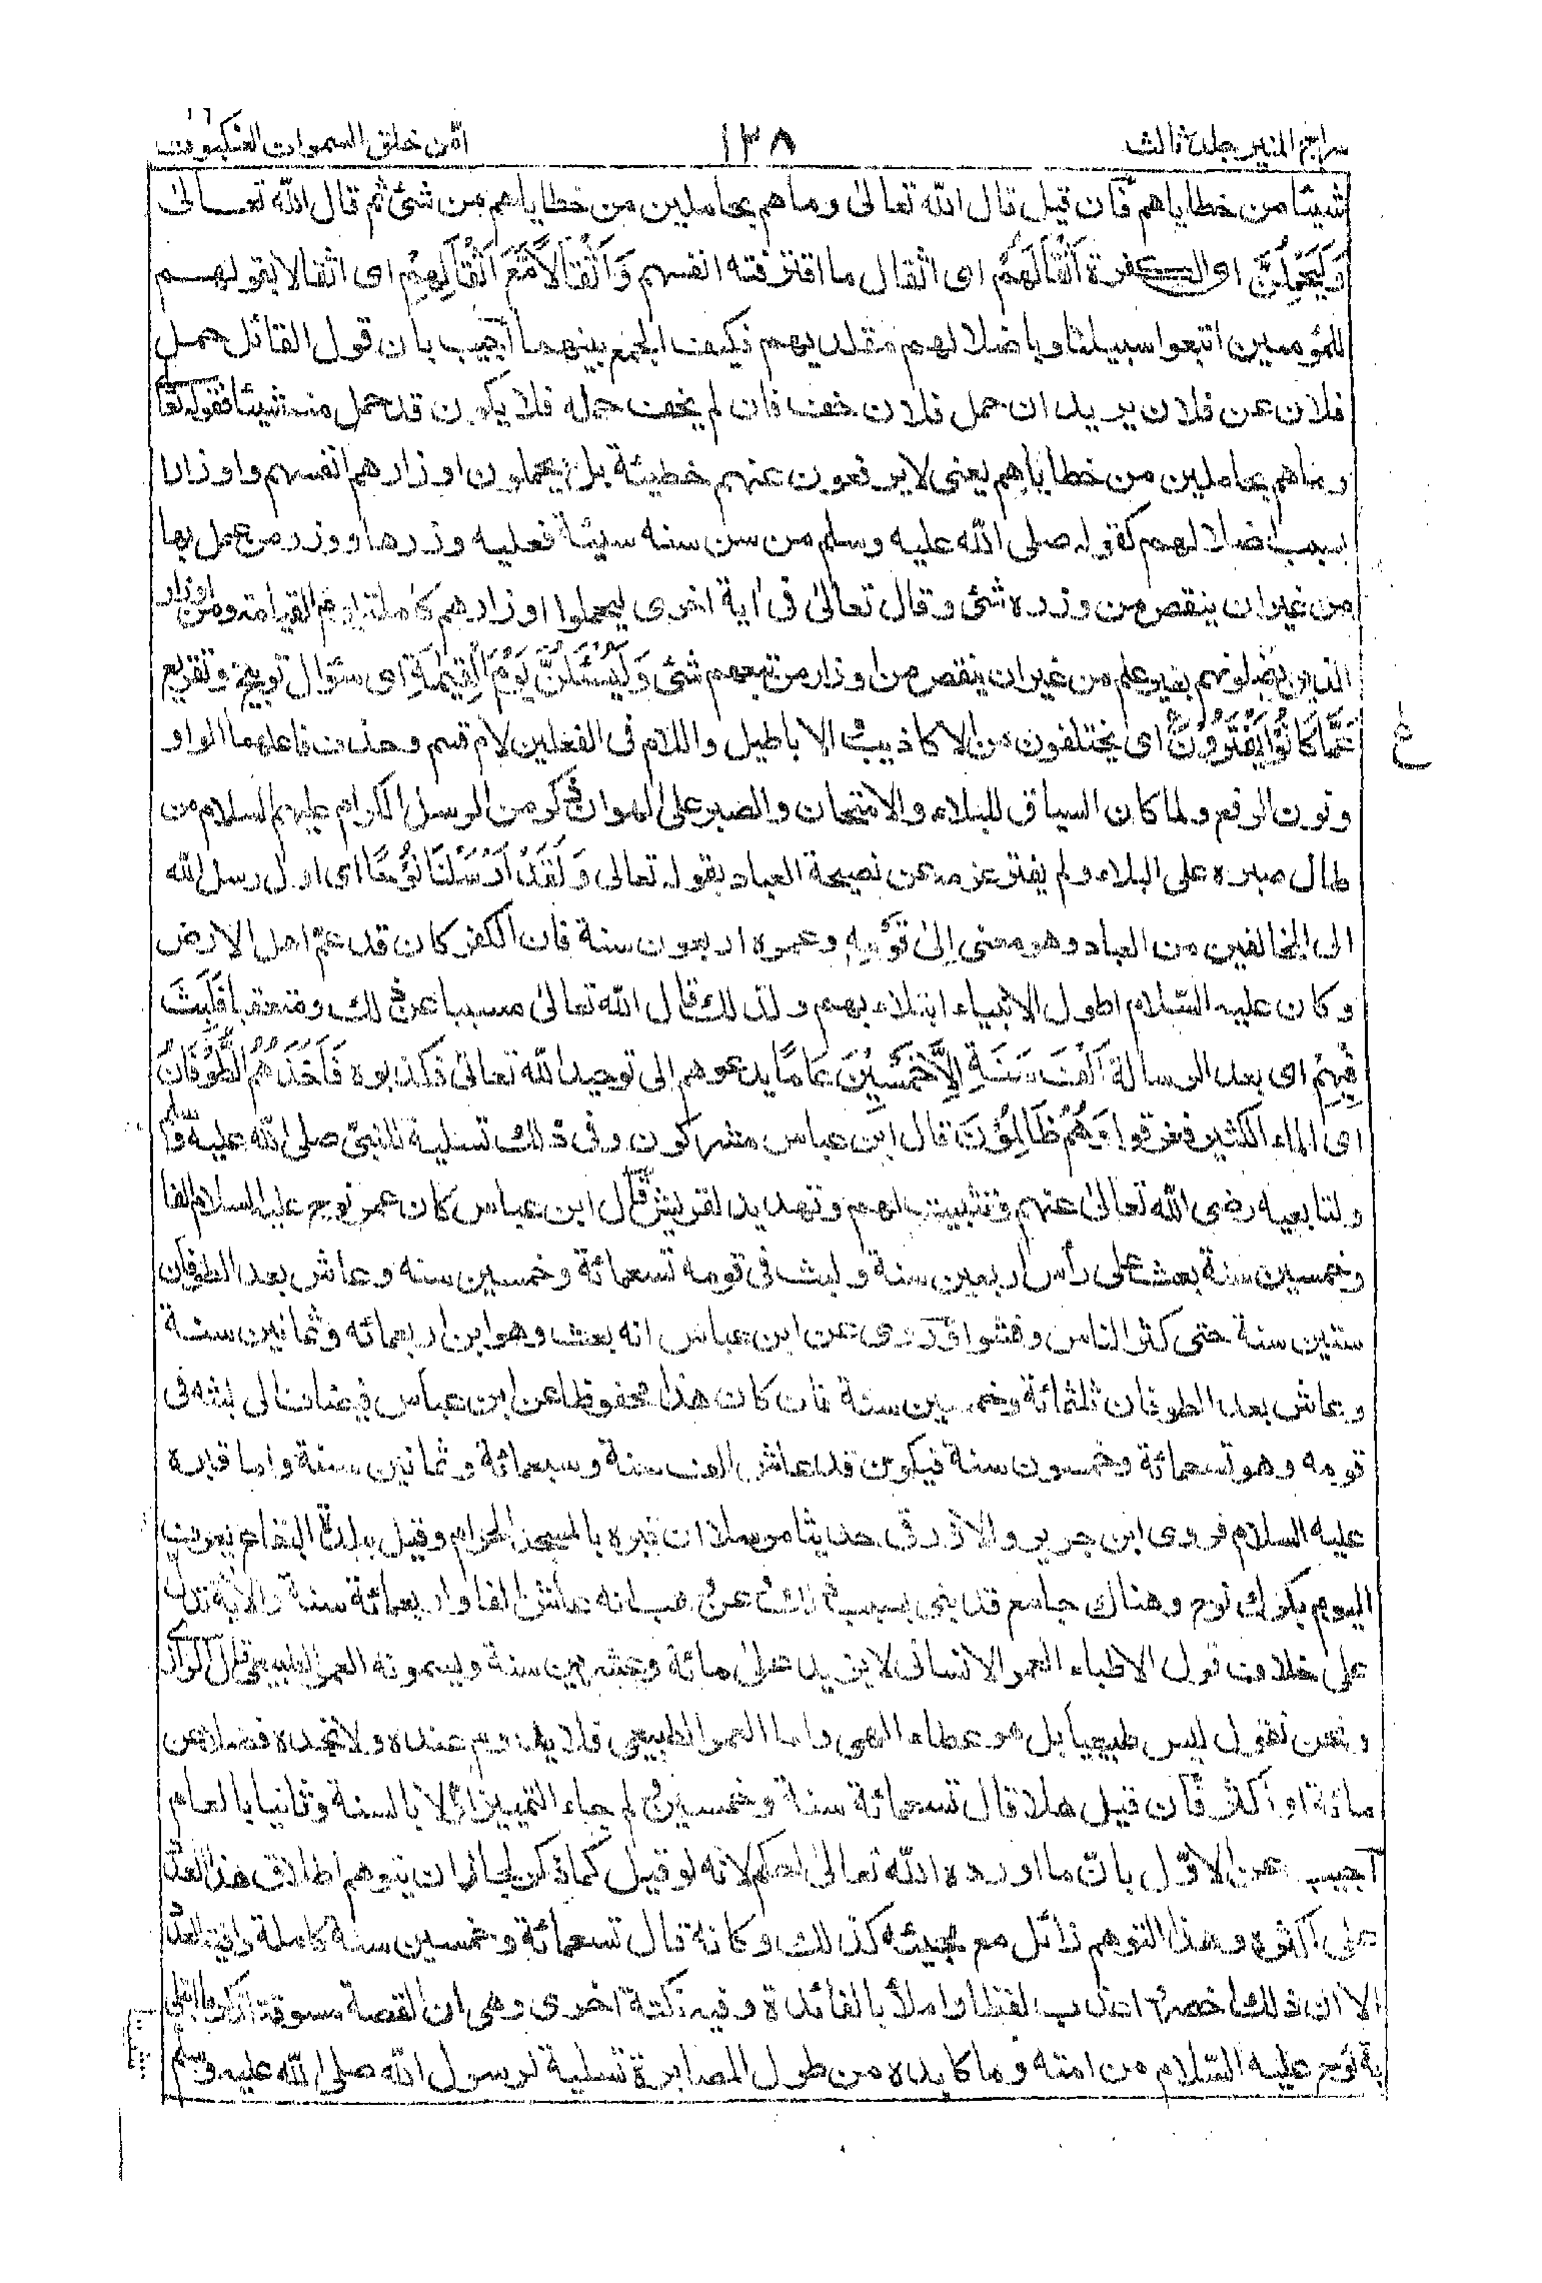 سراج المنير جلد ثالث ١٣٨ امّن خلق السموات العنكبوت
شيئا من خطاياهم فان قيل قال الله تعالىٰ وما هم بحاملين من خطاياهم من شئ ثم قال الله تعالىٰ
وَلَيَحْمِلُنَّ اى الكفرة اَثْقَالَهُمْ اى اثقال ما اقترفته انفسهم وَاَثْقَالًا مَّعَ اَثْقَالِهِمْ اى اثقالا بقولهم
للمؤمنين اتبعوا سبيلنا وباضلالهم مقلديهم فكيف الجمع بينهما اجيب بان قول القائل حمل
فلان عن فلان يريد ان حمل فلان خف فان لم يخف حمله فلا يكون قد حمل منه شيئا فقوله تعا
وما هم بحاملين من خطاياهم يعنى لا يرفعون عنهم خطيئة بل يحملون اوزارهم انفسهم واوزارا
بسبب اضلالهم كقوله صلى الله عليه وسلم من سن سنه سيئة فعليه وزرها ووزر من عمل بها
من غير ان ينقص من وزره شئ وقال تعالىٰ فى اٰية اخرى ليحملوا اوزارهم كاملة يوم القيامة ومن اوزار
الذين يضلونهم بغير علم من غير ان ينقص من اوزار من تبعهم شئ وَلَيُسْـَٔلُنَّ يَوْمَ الْقِيٰمَةِ اى سؤال توبيخ وتقريع
عَمَّا كَانُوْا يَفْتَرُوْنَ اى يختلقون من الاكاذيب الاباطيل واللام فى الفعلين لام قسم وحذف فاعلهما الواو
ع
ونون الرفع ولما كان السياق للبلاء والامتحان والصبر على الهوان ذكر من الرسل الكرام عليهم السلام من
طال صبره على البلاء ولم يفتر عزمه عن نصيحة العباد بقوله تعالى وَلَقَدْ اَرْسَلْنَا نُوْحًا اى اول رسل الله
الى المخالفين من العباد وهو معنى اِلىٰ قَوْمِهٖ وعمره اربعون سنة فان الكفر كان قد عمّ اهل الارض
وكان عليه السّلام اطول الانبياء ابتلاء بهم ولذلك قال الله تعالىٰ مسببا عن ذلك ومتعقبا فَلَبِثَ
فِيْهِمْ اى بعد الرسالة اَلْفَ سَنَةٍ اِلَّا خَمْسِيْنَ عَامًا يدعوهم الى توحيد الله تعالىٰ فكذبوه فَاَخَذَهُمُ الطُّوْفَانُ
اى الماء الكثير فغرقوا وَهُمْ ظَالِمُوْنَ قال ابن عباس مشركون وفى ذلك تسلية للنبى صلى الله عليه وسلم
ولتابعيه رضى الله تعالىٰ عنهم وتثبيت لهم وتهديد لقريش قال ابن عباس كان عمر نوح عليه السلام الفا
وخمسين سنة بعث على رأس اربعين سنة ولبث فى قومه تسعمائة وخمسين سنه وعاش بعد الطوفان
ستين سنة حتى كثر الناس وفشوا وروى عن ابن عباس انه بعث وهو ابن اربعمائه وثمانين سنة
وعاش بعد الطوفان ثلثمائة وخمسين سنة فان كان هذا محفوظا عن ابن عباس فيضاف الى لبثه فى
قومه وهو تسعمائة وخمسون سنة فيكون قد عاش الف سنة وسبعمائة وثمانين سنة واما قبره
عليه السلام فروى ابن جرير والازرقى حديثا مرسلا ان قبره بالمسجد الحرام وقيل ببلدة البقاع يعرف
اليوم بكرك نوح وهناك جامع قد بنى بسبب ذلك وعن وهب انه عاش الفا واربعمائة سنة والاٰية تدل
على خلاف قول الاطباء العمر الانسانى لا يزيد على مائة وعشرين سنة ويسمونه العمر الطبيعى قال الرازى
ونحن نقول ليس طبيعيا بل هو عطاء الهى واما العمر الطبيعى فلا يدوم عندهم ولا لحظة فضلا عن
مائة او اكثر فان قيل هلا قال تسعمائة سنة وخمسين ولم جاء التمييز اولا بالسنة وثانيا بالعام
اجيب عن الاوّل بانّ ما اورده الله تعالىٰ احكم لانه لو قيل كما ذكر لجاز ان يتوهم اطلاق هذا العدد
على اكثره وهذا التوهم زائل مع مجيئه كذلك وكانه قال تسعمائة وخمسين سنة كاملة وافية العدد
الا ان ذلك اخصر واعذب لفظا واملأ بالفائدة وفيه نكتة اخرى وهى ان القصة مسوقة لذكر ما ابتلى
به نوح عليه السّلام من امته وما كابده من طول المصابرة تسلية لرسول الله صلى الله عليه وسلم